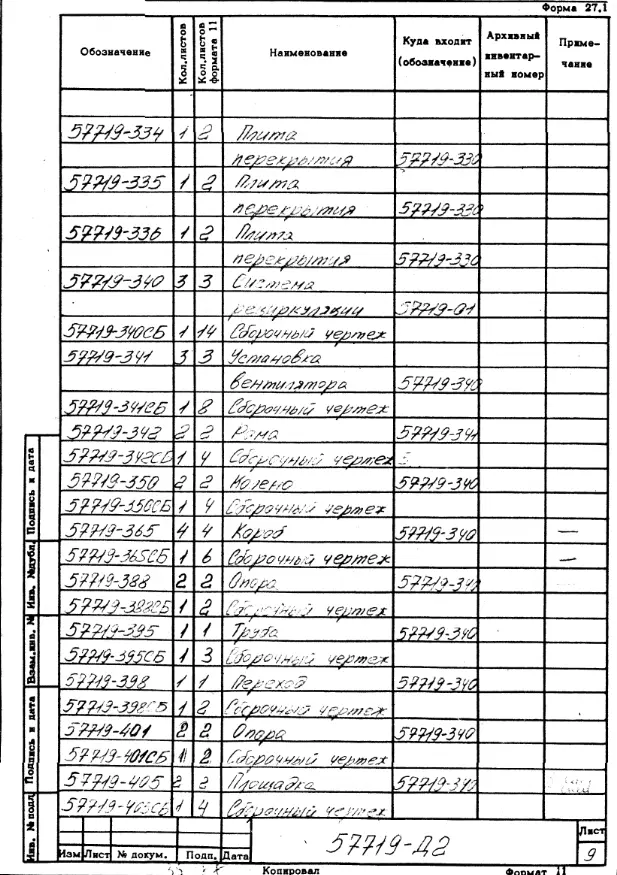 Форма 27.1
Обозначение Кол.листов Кол.листов формата 11 Наименование Куда входит (обозначение) Архивный инвентар-ный номер Приме-чание
57719-334 1 2 Плита
перекрытия 57719-330
57719-335 1 2 Плита
перекрытия 57719-330
57719-336 1 2 Плита
перекрытия 57719-330
57719-340 3 3 Система
рециркуляции 57719-01
57719-340СБ 1 14 Сборочный чертеж
57719-341 3 3 Установка
вентилятора 57719-340
57719-341СБ 1 8 Сборочный чертеж
57719-342 2 2 Рама 57719-341
57719-342СБ 1 4 Сборочный чертеж
57719-350 2 2 Колено 57719-340
57719-350СБ 1 4 Сборочный чертеж
57719-365 4 4 Короб 57719-340 —
57719-365СБ 1 6 Сборочный чертеж —
57719-388 2 2 Опора
57719-388СБ 1 2 Сборочный чертеж
57719-395 1 1 Труба 57719-340
57719-395СБ 1 3 Сборочный чертеж
57719-398 1 1 Переход 57719-340
57719-398СБ 1 2 Сборочный чертеж
57719-401 2 2 Опора 57719-340
57719-401СБ 1 2 Сборочный чертеж
57719-405 2 2 Площадка
57719-405СБ 1 4 Сборочный чертеж
Подпись и дата
Инв. №дубл.
Взам.инв. №
Подпись и дата
Инв. №подл
Изм Лист № докум. Подп. Дата
57719-Д2
Лист
9
Копировал Формат 11